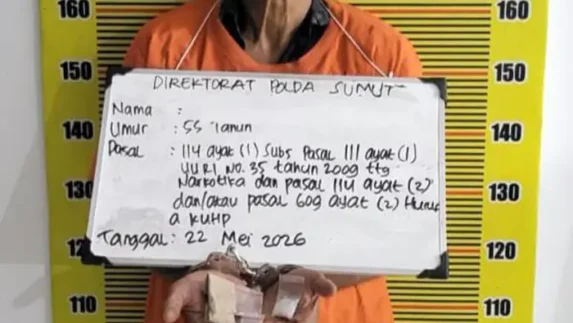 160
160
150
150
140
140
130
130
12
120
110
110
DIREKTORAT POLDA SUMUT
Nama :
Umur : 55 Tahun
Pasal : 114 ayat (1) Subs Pasal 111 ayat (1)
UU RI No. 35 tahun 2009 ttg
Narkotika dan pasal 114 ayat (2)
dan/atau pasal 609 ayat (2) Huruf
a KUHP
Tanggal : 22 Mei 2026